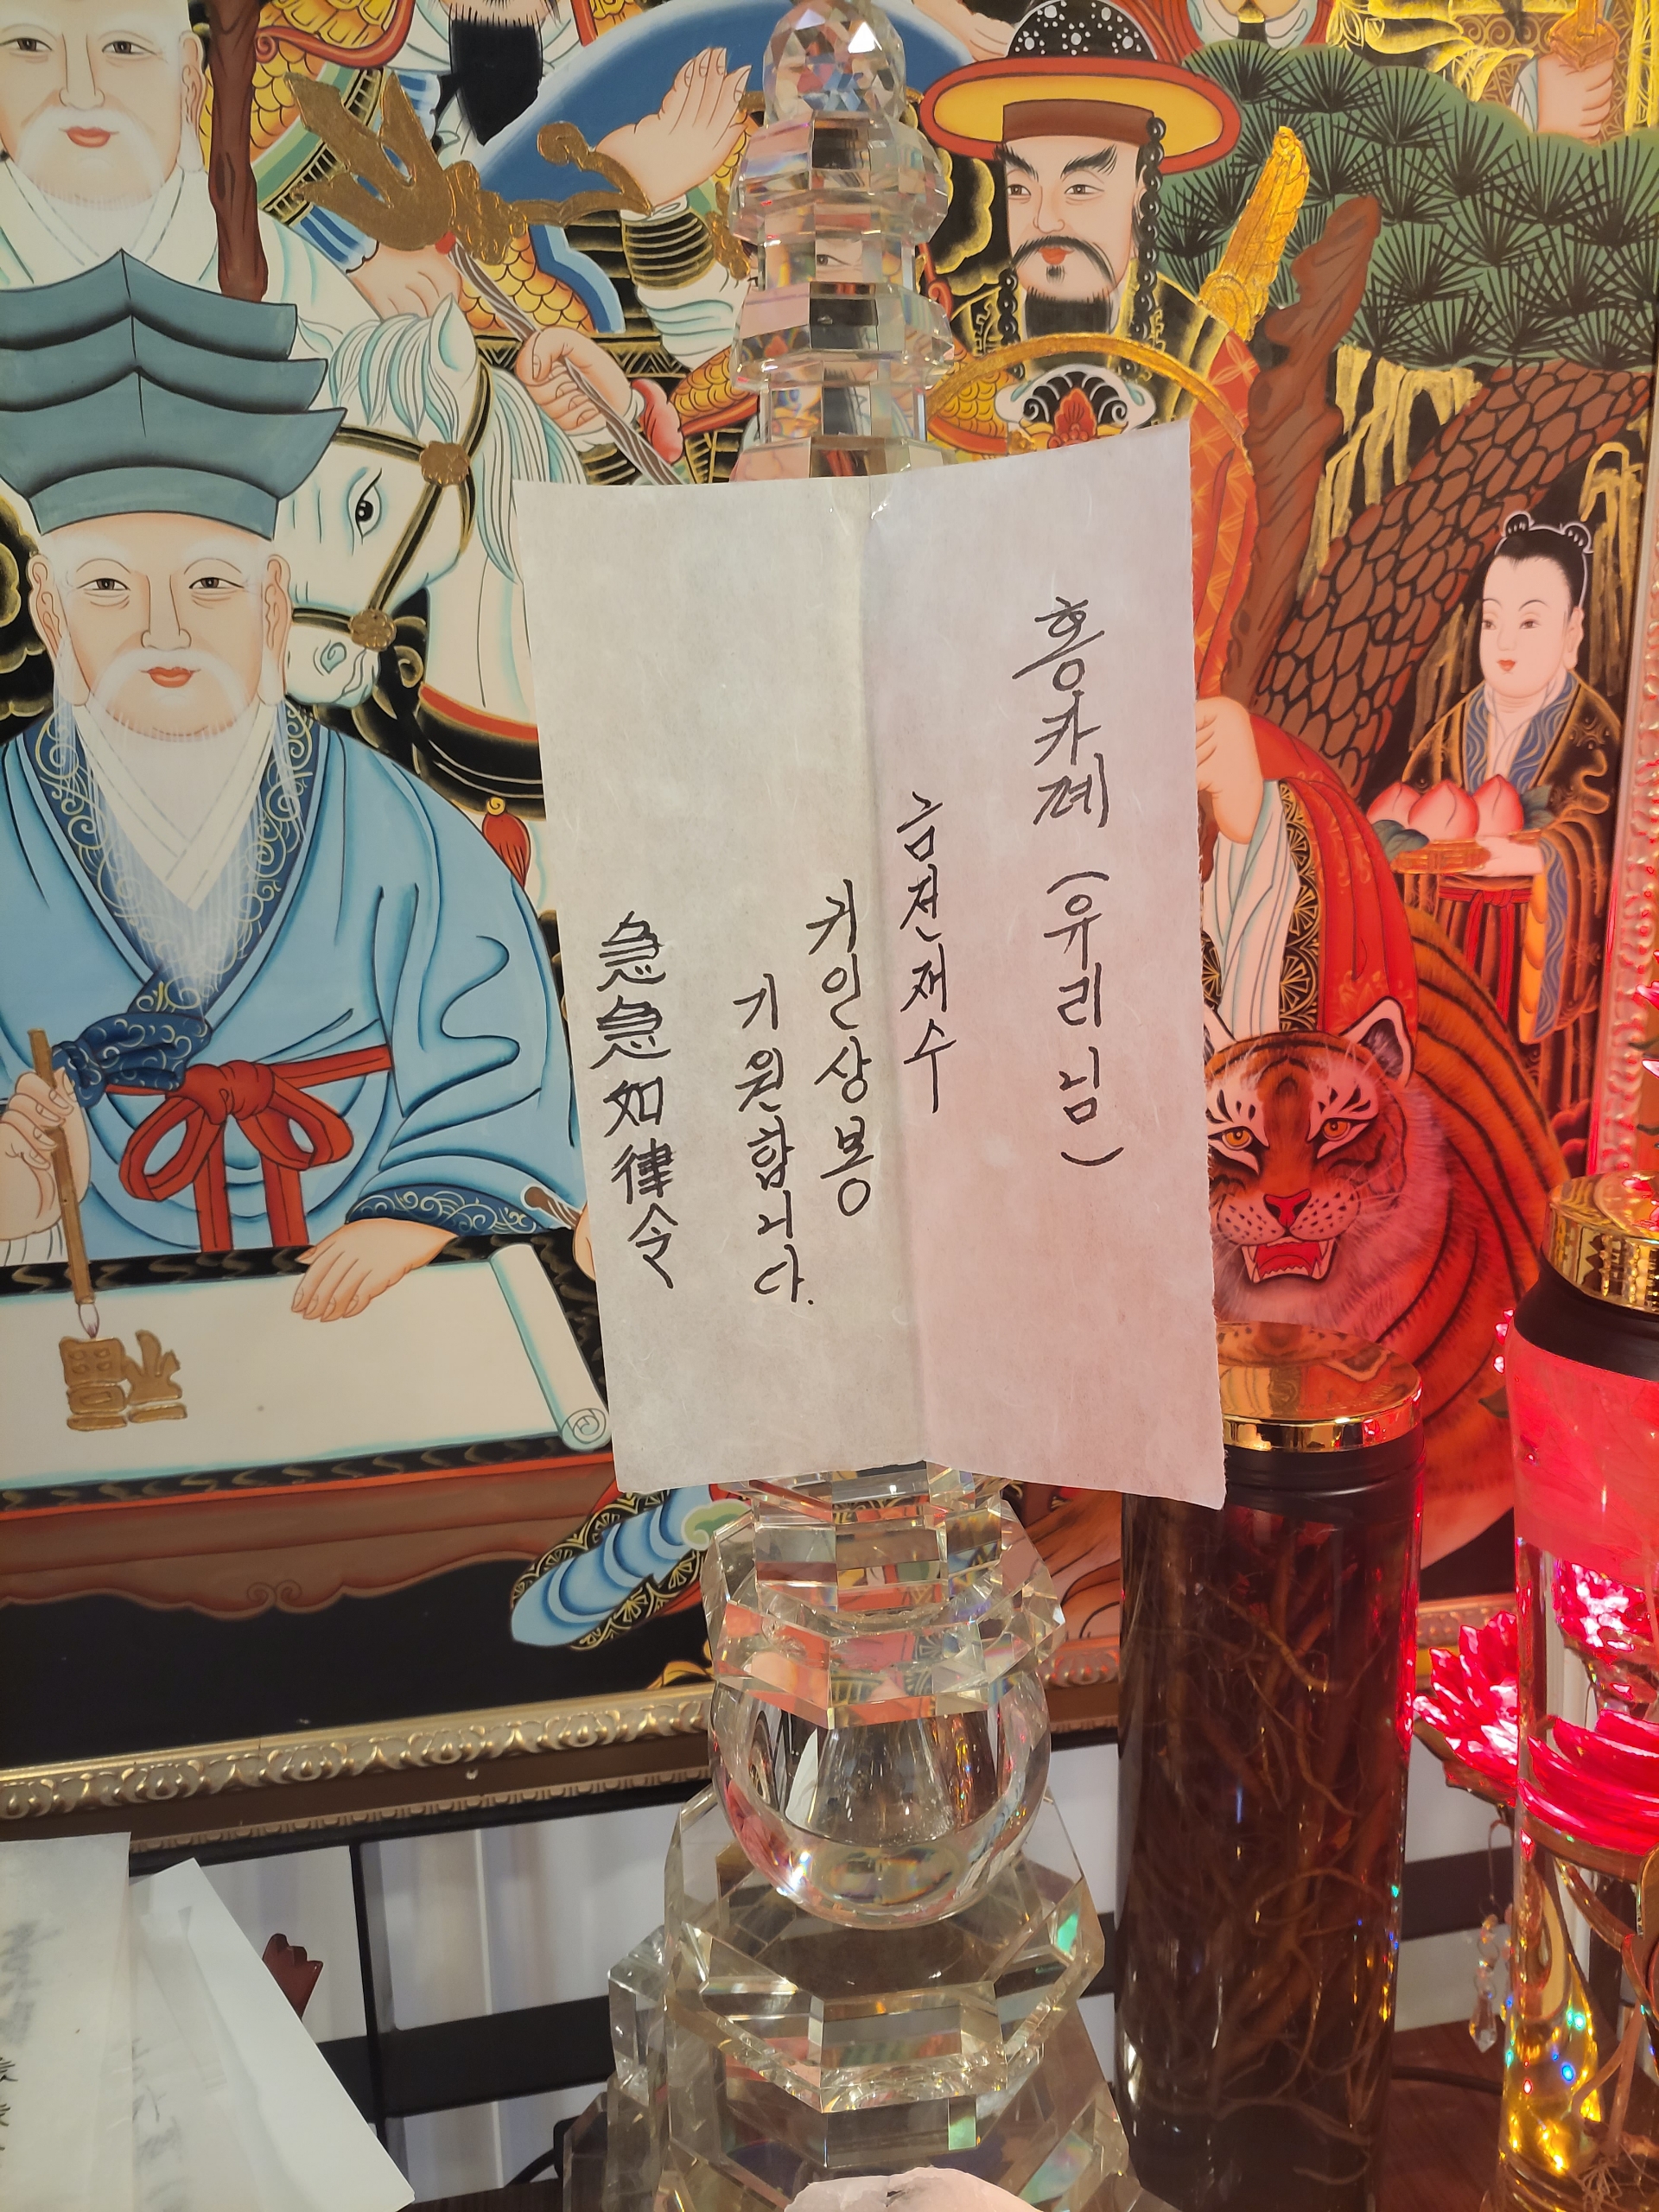 홍카페 (유리님)
금전재수
귀인상봉
기원합니다.
急急如律令
福